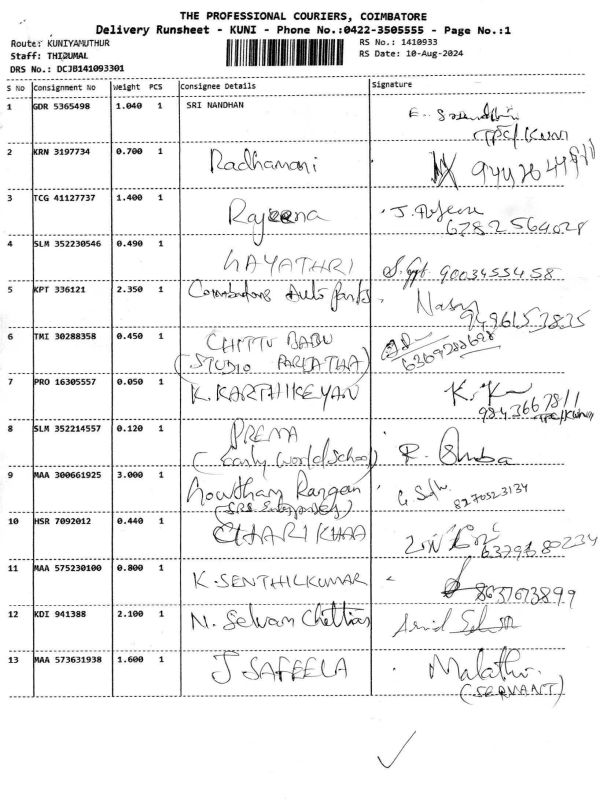 THE PROFESSIONAL COURIERS, COIMBATORE
Delivery Runsheet - KUNI - Phone No.:0422-3505555 - Page No.:1
Route: KUNIYAMUTHUR
RS No.: 1410933
Staff: THIRUMAL
RS Date: 10-Aug-2024
DRS No.: DCJB141093301
S No Consignment No Weight PCS Consignee Details Signature
1 GDR 5365498 1.040 1 SRI NANDHAN
2 KRN 3197734 0.700 1 Radhamani
3 TCG 41127737 1.400 1 Rajeena
4 SLM 352230546 0.490 1 GAYATHRI 9003455458
5 KPT 336121 2.350 1 Coimbatore Auto Parts
6 TMI 30288358 0.450 1 CHITTU BABU
(STUDIO PARIJATHA)
7 PRO 16305557 0.050 1 K. KARTHIKEYAN
9843667811
8 SLM 352214557 0.120 1 PREMA
(Early World School)
9 MAA 300661925 3.000 1 Gowtham Rangan
(SRS Enterprises)
8270523134
10 HSR 7092012 0.440 1
11 MAA 575230100 0.800 1 K. SENTHILKUMAR
12 KDI 941388 2.100 1 N. Selvam Chettiar
13 MAA 573631938 1.600 1 J SAFEELA Malathi.
(SERVANT)